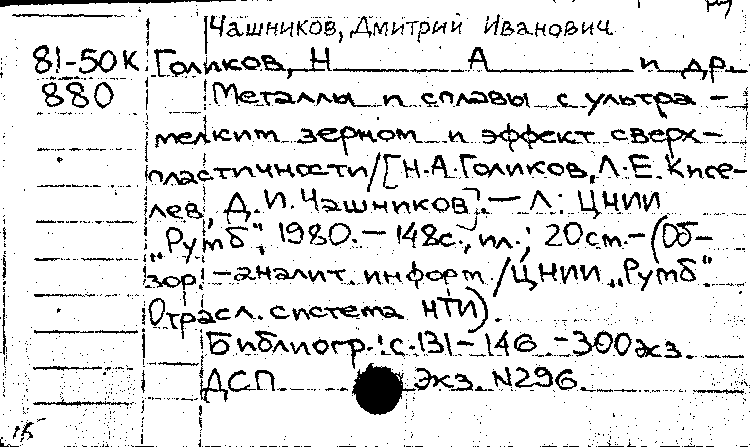 Чашников, Дмитрий Иванович
81-50К Голиков, Н А и др.
880 Металлы и сплавы с ультра-
мелким зерном и эффект сверх-
пластичности/[Н.А.Голиков, Л.Е.Кисе-
лев, Д.И.Чашников].— Л.: ЦНИИ
„Румб", 1980.—148с., ил.; 20см.—(Об-
зор.-аналит. информ./ЦНИИ „Румб".
Отрасл. система НТИ).
Библиогр.: с.131-146.-300экз.
ДСП. Экз. N296.